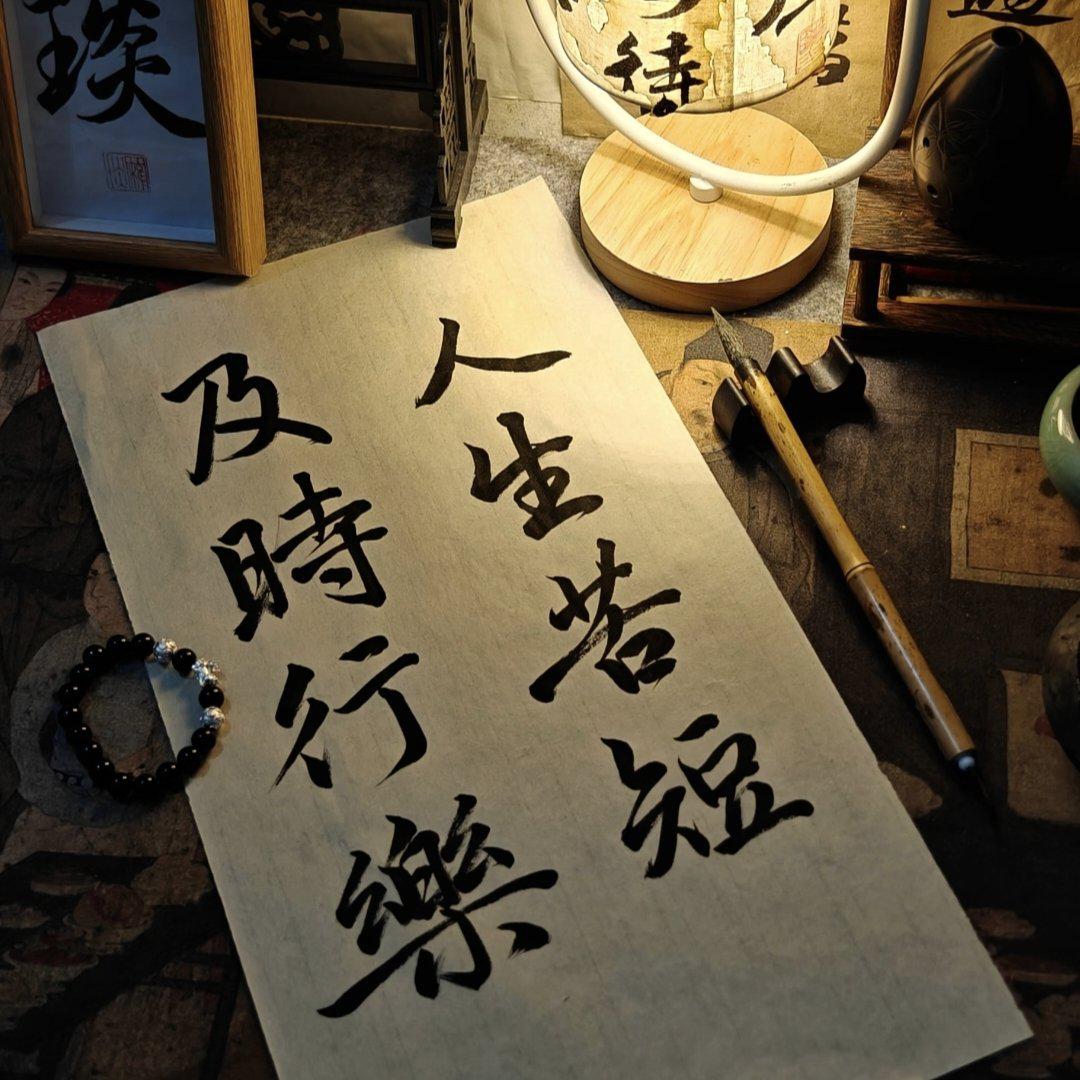 人生苦短
及時行樂
琰
待